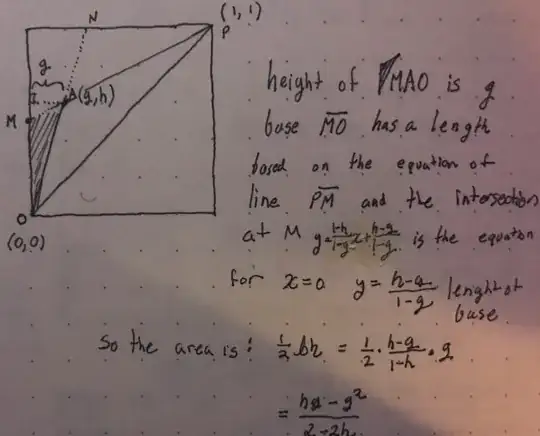 (1, 1)
N
P
g
I
A(g,h)
M
O
(0,0)
height of MAO is g
base MO has a length
based on the equation of
line PM and the intersection
at M y=1-h/1-g x+h-g/1-g is the equation
for x=0 y=h-g/1-g lenght of
base
So the area is: 1/2 bh = 1/2 · h-g/1-h · g
= hg-g²/2-2h